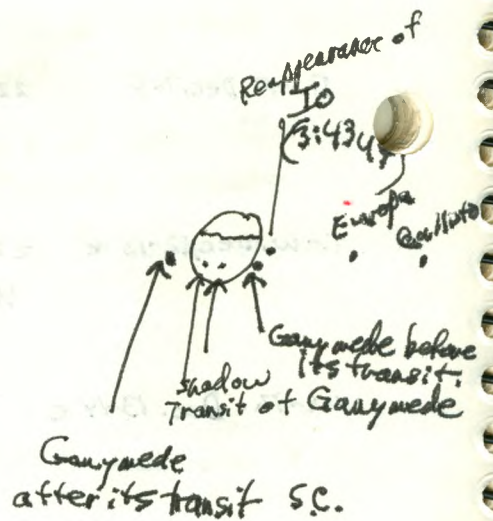 Reappearance of
Io
(3:43
Europa
Callisto
Ganymede before
its transit.
Shadow
Transit of Ganymede
Ganymede
after its transit S.C.